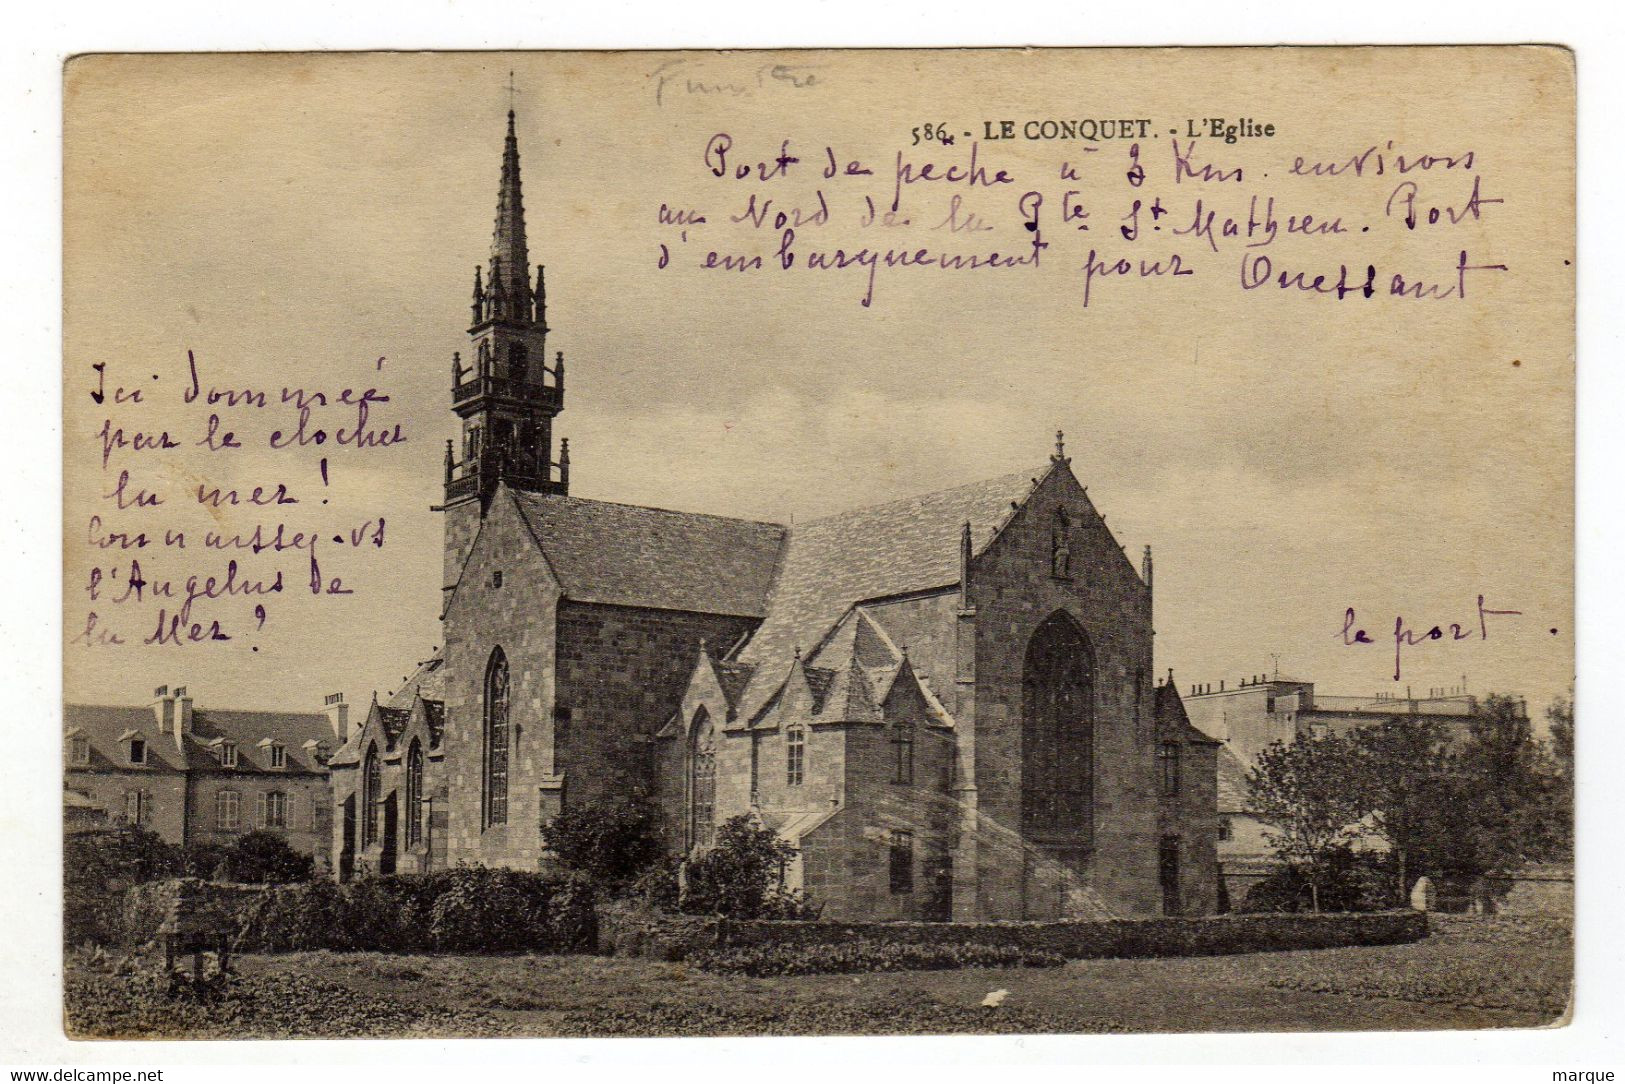 Finistère
586. - LE CONQUET. - L'Eglise
Port de pêche à 3 Km. environs
au Nord de la Pte St Mathieu. Port
d'embarquement pour Ouessant
Ici dominée
par le clocher
la mer !
Connaissez-vs
l'Angelus de
la Mer ?
le port .
www.delcampe.net
marque